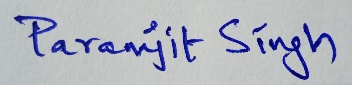 Paramjit Singh